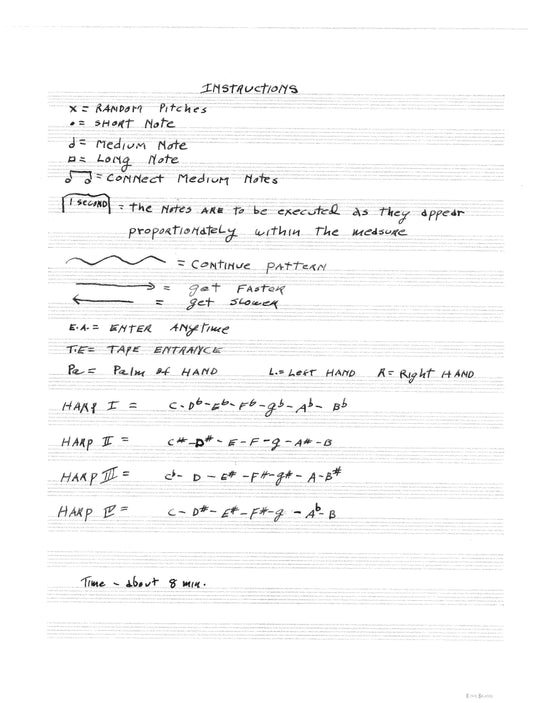 INSTRUCTIONS
x = RANDOM Pitches
• = SHORT Note
d = Medium Note
▫ = LONG Note
= CONNECT Medium Notes
1 SECOND = the Notes ARE to be executed as they appear
proportionately within the measure
= CONTINUE PATTERN
→ = get FASTER
← = get SLOWER
E.A. = ENTER ANYtime
T.E = TAPE ENTRANCE
Pa = Palm of HAND L. = Left HAND R = Right HAND
HARP I = C - Db - Eb - Fb - gb - Ab - Bb
HARP II = C# - D# - E - F - g - A# - B
HARP III = Cb - D - E# - F# - g# - A - B#
HARP IV = C - D# - E# - F# - g - Ab - B
Time - about 8 min.